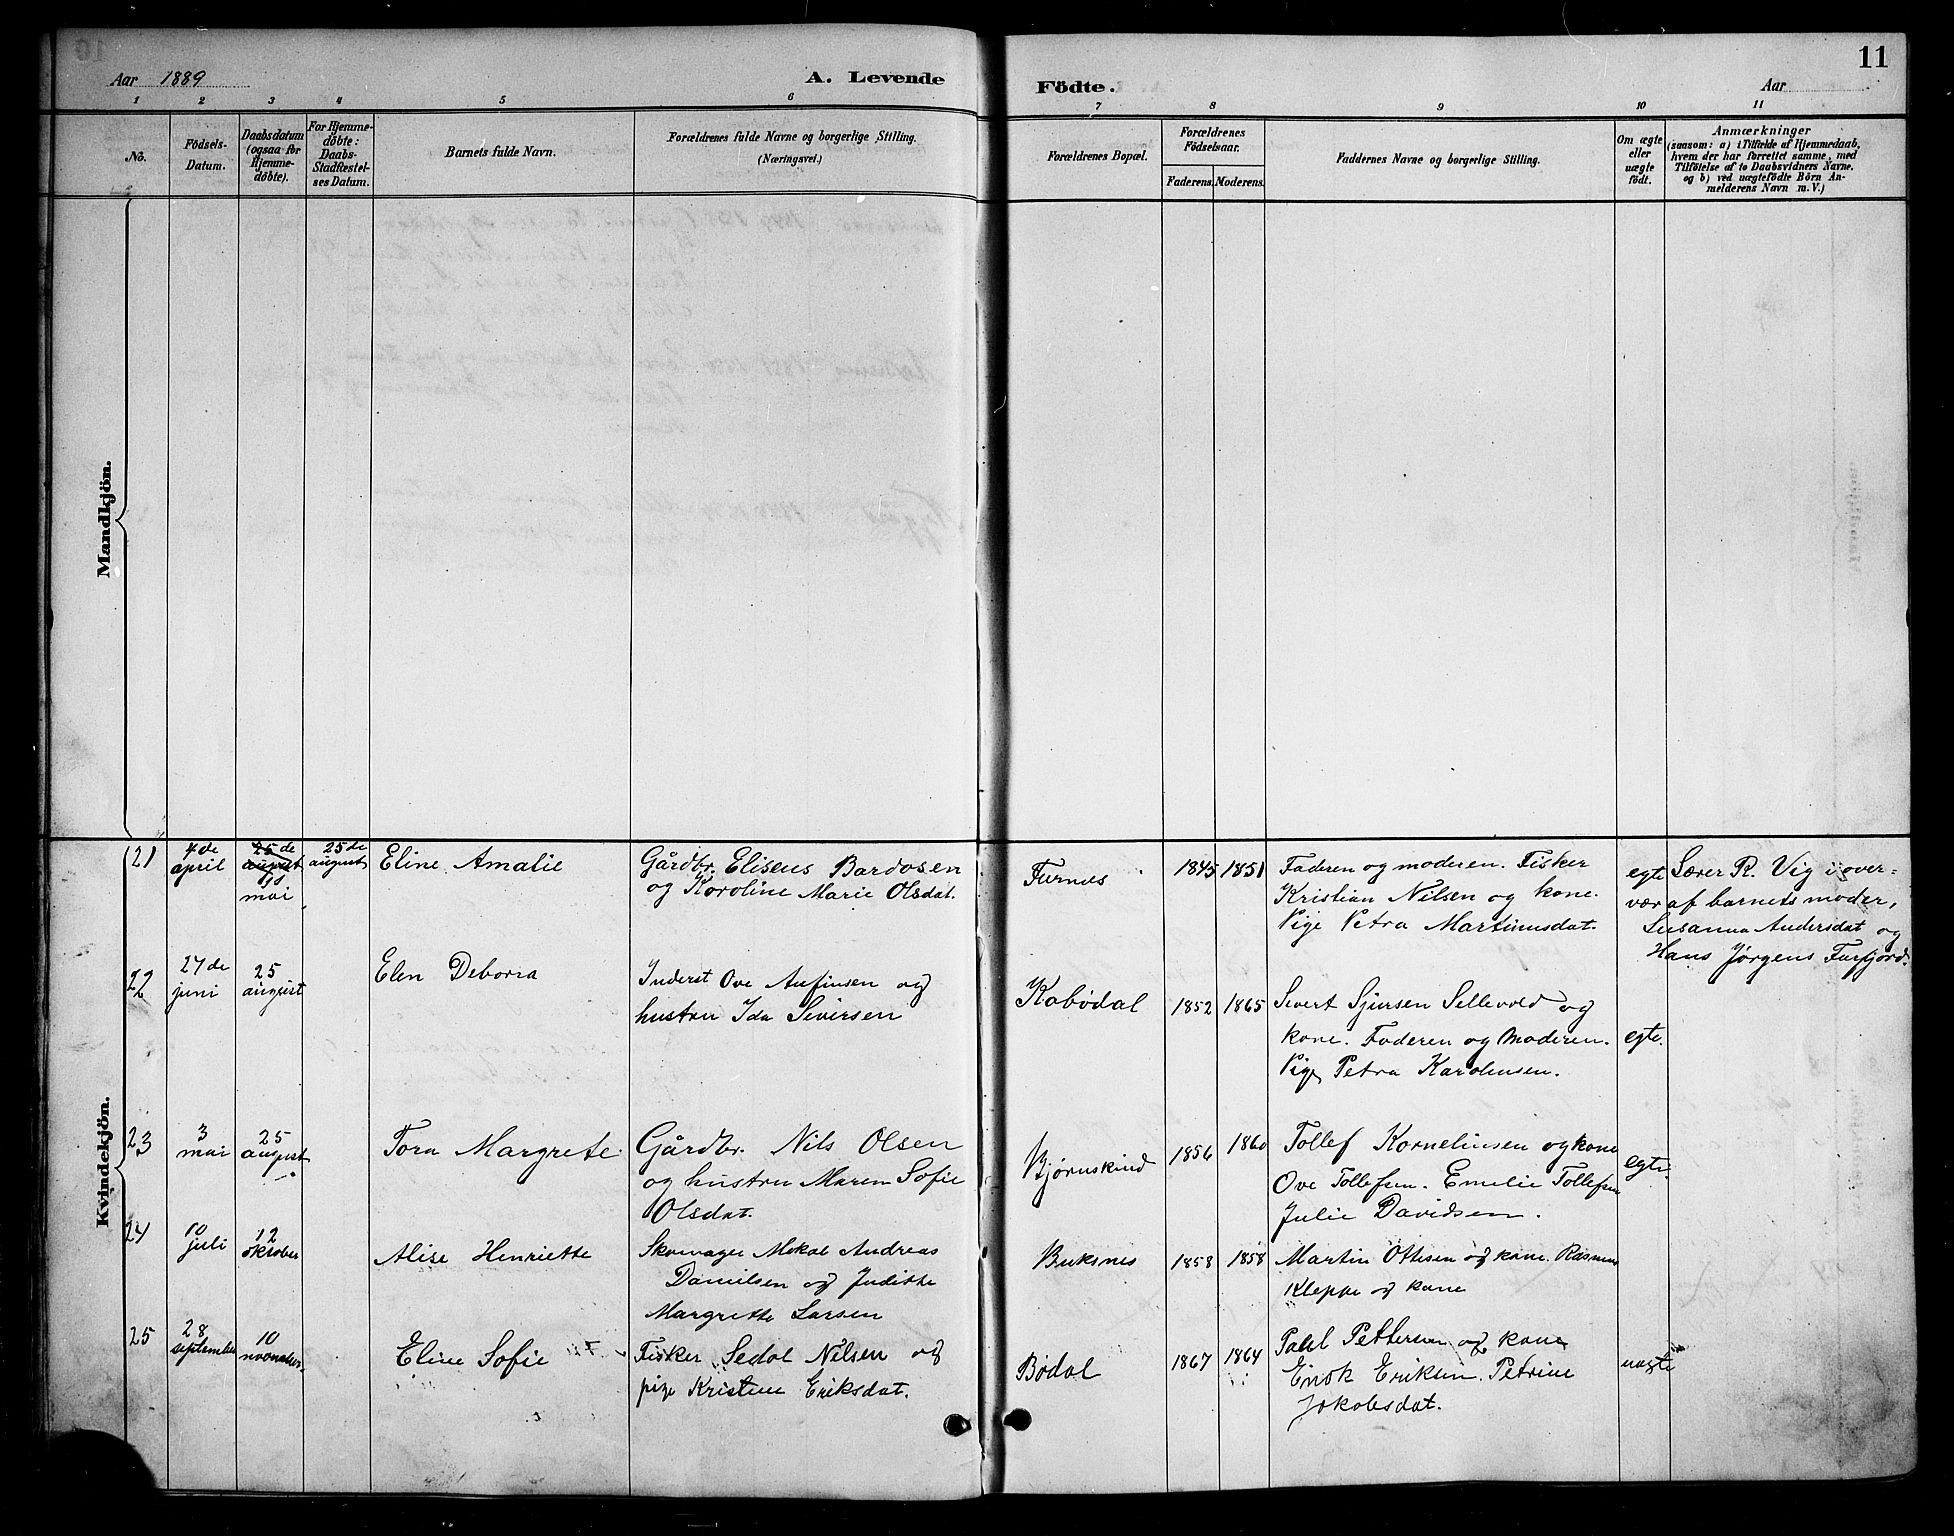 Aar 1889
A. Levende
Födte.
Aar
11
1 2 3 4 5 6 7 8 9 10 11
No.
Födsels-
Datum.
Daabsdatum
(ogsaa for
Hjemme-
döbte).
For Hjemme-
döbte:
Daabs-
Stadfæstel-
ses Datum.
Barnets fulde Navn.
Forældrenes fulde Navne og borgerlige Stilling.
(Næringsvei.)
Forældrenes Bopæl.
Forældrenes
Födselsaar.
Faderens. Moderens.
Faddernes Navne og borgerlige Stilling.
Om ægte
eller
uægte
födt.
Anmærkninger
(saasom: a) i Tilfælde af Hjemmedaab,
hvem der har forrettet samme, med
Tilföielse af to Daabsvidners Navne.
og b) ved uægtefödte Börn An-
melderens Navn m. V.)
Mandkjön.
Kvindekjön.
21
4de
april
25de
august
mai
25de
august
Eline Amalie
Gårdbr. Eliseus Bardosen
og Karoline Marie Olsdat.
Furnes
1845 1851
Faderen og moderen. Fisker
Kristian Nilsen og kone.
Pige Petra Martinusdat.
egte
Lærer R. Vig i over-
vær af barnets moder,
Susanna Andersdat og
Hans Jørgens Furfjord.
22
27de
juni
25
august
Elen Deborra
Inderst Ove Anfinsen og
hustru Ida Siversen
Kobødal
1852 1865
Sivert Sjursen Sellevold og
kone. Faderen og Moderen.
Pige Petra Karolinsen.
egte.
23
3
mai
25
august
Tora Margrete
Gårdbr. Nils Olsen
og hustru Maren Sofie
Olsdat.
Bjørnskind
1856 1860
Tollef Korneliusen og kone
Ove Tollefsen. Emelie Tollefsen
Julie Davidsen.
egte.
24
10
juli
12
oktober
Alise Henriette
Skomager Mekal Andreas
Danielsen og Juditte
Margrette Larsen
Buksnes
1858 1858
Martin Ottesen og kone. Rasmus
Kleppe og kone
25
28
september
10
november
Eline Sofie
Fisker Sedol Nilsen og
pige Kristine Eriksdat.
Bødal
1867 1864
Paul Pettersen og kone
Enok Eriksen. Petrine
Jokobsdat.
uægte